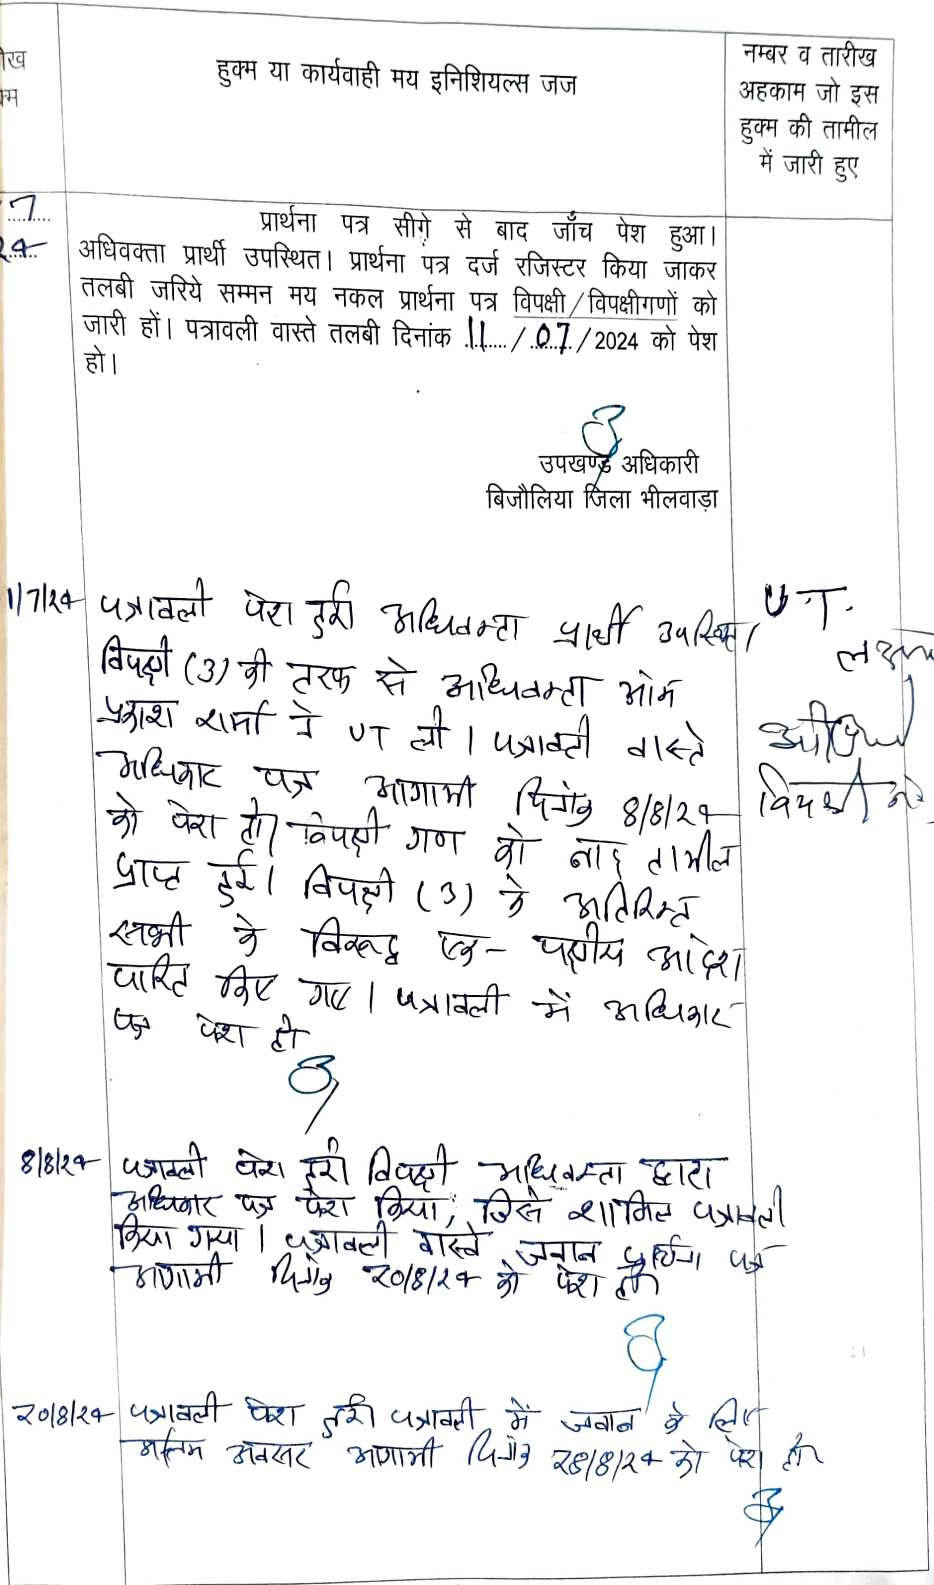 ीख
क्म
हुक्म या कार्यवाही मय इनिशियल्स जज
नम्बर व तारीख
अहकाम जो इस
हुक्म की तामील
में जारी हुए
7
24
प्रार्थना पत्र सीग़े से बाद जाँच पेश हुआ।
अधिवक्ता प्रार्थी उपस्थित। प्रार्थना पत्र दर्ज रजिस्टर किया जाकर
तलबी जरिये सम्मन मय नकल प्रार्थना पत्र विपक्षी/विपक्षीगणों को
जारी हों। पत्रावली वास्ते तलबी दिनांक 11/07/2024 को पेश
हो।
उपखण्ड अधिकारी
बिजौलिया जिला भीलवाड़ा
1/7/24 पत्रावली पेश हुई अधिवक्ता प्रार्थी उपस्थित।
विपक्षी (3) की तरफ से अधिवक्ता ओम
प्रकाश शर्मा ने UT ली। पत्रावली वास्ते
अधिकार पत्र आगामी दिनांक 8/8/24
को पेश हो। विपक्षी गण को बाद तामील
प्राप्त हुई। विपक्षी (3) के अतिरिक्त
सभी के विरूद्ध एक-पक्षीय आदेश
पारित किए गए। पत्रावली में अधिकार
पत्र पेश हो
U.T.
विपक्षी
8/8/24 पत्रावली पेश हुई विपक्षी अधिवक्ता द्वारा
अधिकार पत्र पेश किया, जिसे शामिल पत्रावली
किया गया। पत्रावली वास्ते जवाब प्रार्थना पत्र
आगामी दिनांक 20/8/24 को पेश हो
20/8/24 पत्रावली पेश हुई पत्रावली में जवाब के लिए
अन्तिम अवसर आगामी दिनांक 28/8/24 को पेश हो